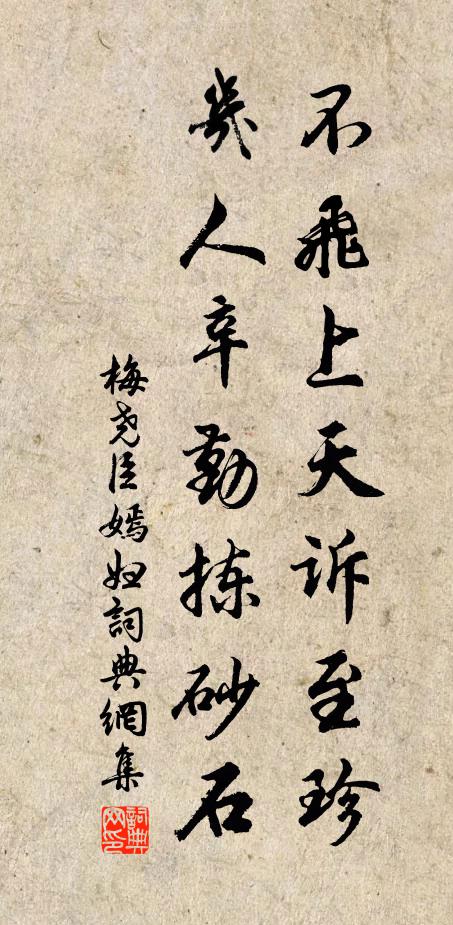 不飛上天訴至珍
幾人辛勤揀砂石
梅尧臣嫣妲詞典網集
詞典网印